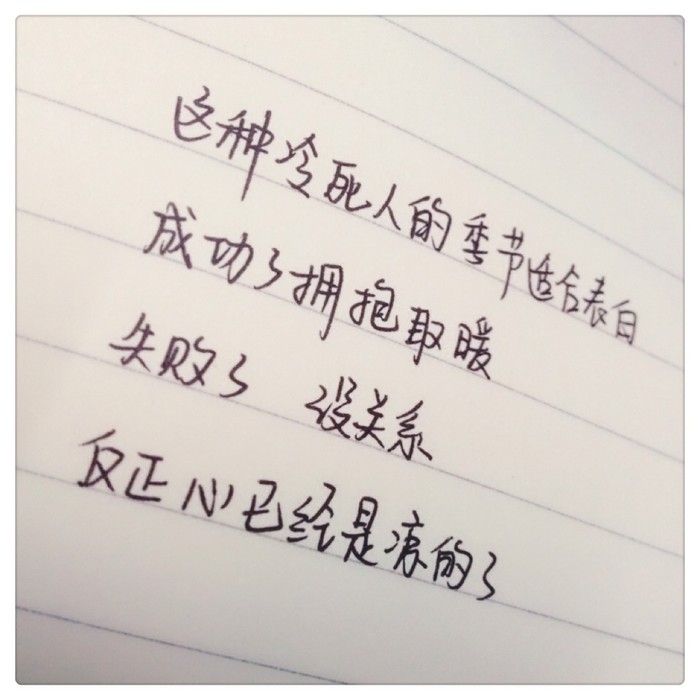 这种冷死人的季节适合表白
成功了拥抱取暖
失败了 没关系
反正心已经是凉的了